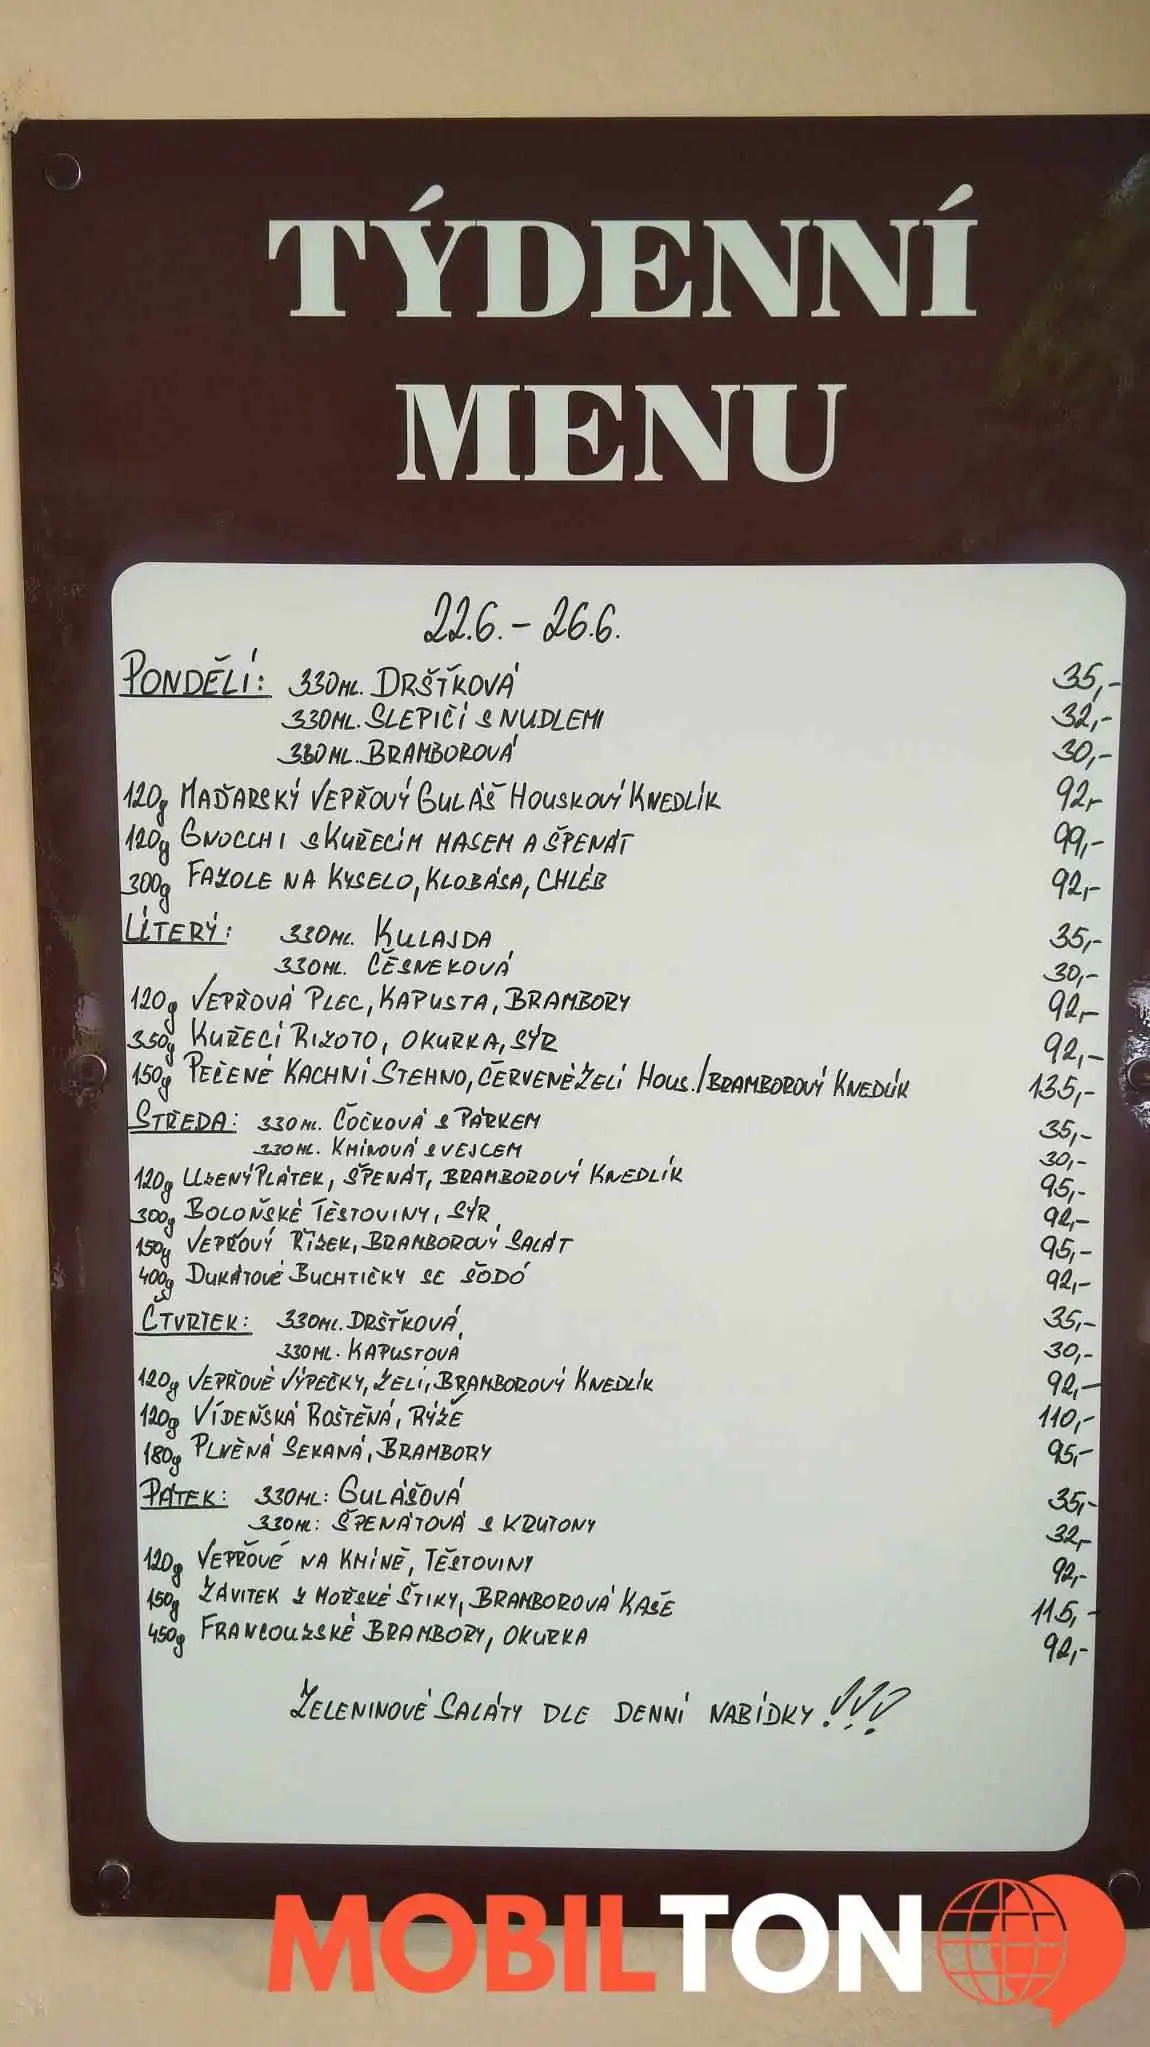 TÝDENNÍ
MENU
22.6. - 26.6.
PONDĚLÍ: 330ML. DRŠŤKOVÁ 35,-
330ML. SLEPIČÍ S NUDLEMI 32,-
330ML. BRAMBOROVÁ 30,-
120g MAĎARSKÝ VEPŘOVÝ GULÁŠ HOUSKOVÝ KNEDLÍK 92,-
120g GNOCCHI S KUŘECÍM MASEM A ŠPENÁT 99,-
300g FAZOLE NA KYSELO, KLOBÁSA, CHLÉB 92,-
ÚTERÝ: 330ML. KULAJDA 35,-
330ML. ČESNEKOVÁ 30,-
120g VEPŘOVÁ PLEC, KAPUSTA, BRAMBORY 92,-
350g KUŘECÍ RIZOTO, OKURKA, SÝR 92,-
150g PEČENÉ KACHNÍ STEHNO, ČERVENÉ ZELÍ HOUS./BRAMBOROVÝ KNEDLÍK 135,-
STŘEDA: 330ML. ČOČKOVÁ S PÁRKEM 35,-
330ML. KMÍNOVÁ S VEJCEM 30,-
120g UZENÝ PLÁTEK, ŠPENÁT, BRAMBOROVÝ KNEDLÍK 95,-
300g BOLOŇSKÉ TĚSTOVINY, SÝR 92,-
150g VEPŘOVÝ ŘÍZEK, BRAMBOROVÝ SALÁT 95,-
400g DUKÁTOVÉ BUCHTIČKY SE ŠODÓ 92,-
ČTVRTEK: 330ML. DRŠŤKOVÁ 35,-
330ML. KAPUSTOVÁ 30,-
120g VEPŘOVÉ VÝPEČKY, ZELÍ, BRAMBOROVÝ KNEDLÍK 92,-
120g VÍDEŇSKÁ ROŠTĚNÁ, RÝŽE 110,-
180g PLNĚNÁ SEKANÁ, BRAMBORY 95,-
PÁTEK: 330ML: GULÁŠOVÁ 35,-
330ML: ŠPENÁTOVÁ S KRUTONY 32,-
120g VEPŘOVÉ NA KMÍNĚ, TĚSTOVINY 92,-
150g ZÁVITEK Z MOŘSKÉ ŠTIKY, BRAMBOROVÁ KAŠE 115,-
450g FRANCOUZSKÉ BRAMBORY, OKURKA 92,-
ZELENINOVÉ SALÁTY DLE DENNÍ NABÍDKY!!!
MOBILTON